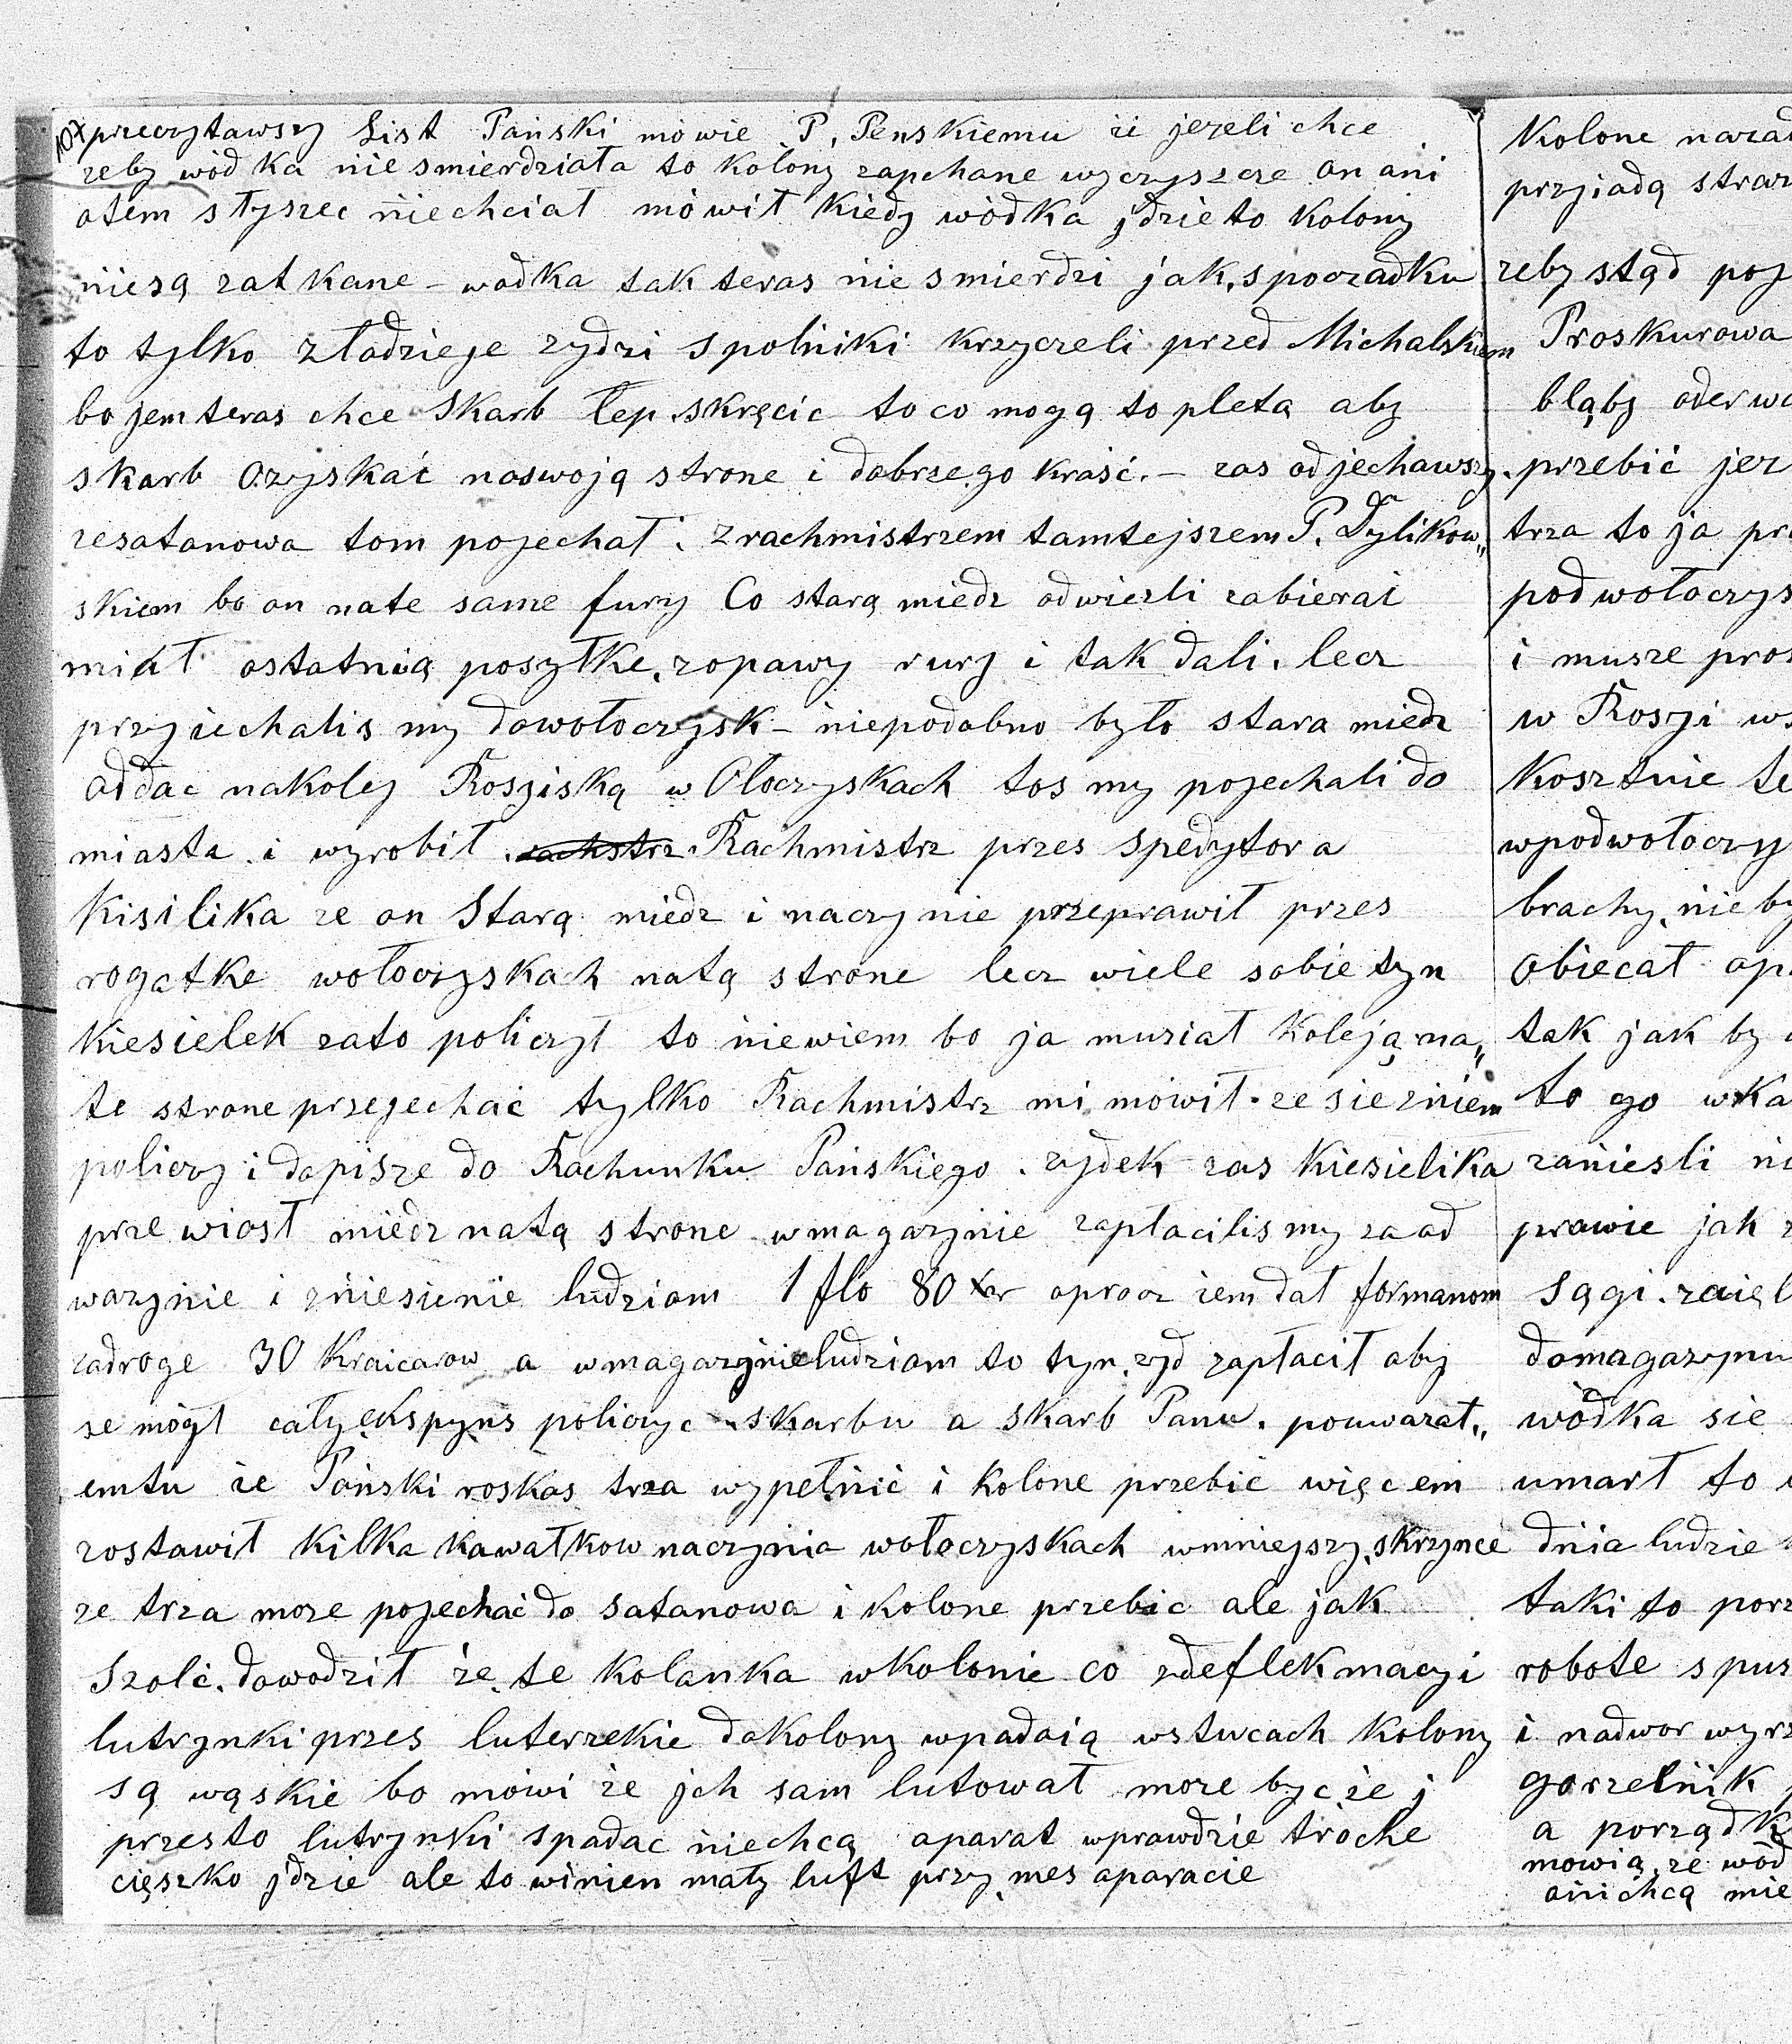 107 przeczytawszy List Pański mówie P. Penskiemu że jezeli chce
zeby wódka nie smierdziała to kolony zapchane wyczyszcze on ani
otem styszec niechciał mówił kiedy wòdka jdzie to kolony
niesą zatkane - wodka tak teras niesmierdzi jak spoczadku
to tylko złodzieje zydzi spolniki krzyczeli przed Michalskiem
bo jem teras chce Skarb łep skręcic to co mogą to pletą aby
skarb ozyskać naswoją strone i dobrze go kraść. - zas odjechawszy
zesatanowa tom pojechał z rachmistrzem tamtejszem P. Dylikow„
skiem bo on nate same fury Co starą miedz odwiezli zabierać
miał ostatnią posyłke zopawy rury i tak dali. lecz
przyiechalismy dowołoczysk - niepodobno było stara miedz
oddac nakolej Rosyiską w Ołoczyskach tosmy pojechali do
miasta i wyrobił Rachmistrz przes spedytora
Kisilika ze on Starą miedz i naczynie przeprawił przes
rogatke wołoczyskach natą strone lecz wiele sobie tyn
Kiesielek zato policzył to niewiem bo ja musiał koleją na„
te strone przejechać tylko Rachmistrz mi mowił ze sie zniem
policzy i dopisze do Rachunku Pańskiego. zydek zas Kiesielika
prze wiosł miedz natą strone wmagazynie zapłacilismy za od
wazynie i zniesienie ludziom 1 flo 80 xr oprocz iem dał formanom
zadroge 30 Kraicarow a wmagazynie ludziom to tyn zyd zapłacił aby
se mógł cały ekspyns policzyc skarbu a skarb Panu. pouwazał„
emtu że Pański roskas trza wypełnić i kolone przebić więcem
zostawił kilka kawałkow naczynia wołoczyskach wmniejszy skrzynce
ze trza moze pojechać do satanowa i kolone przebic ale jak
Szolc dowodził że te kolanka wkolonie co zdeflekmacyi
lutrynki przes luterzekie dokolony wpadaią wstucach kolony
są wąskie bo mówi że jch sam lutował moze byc że j
przesto lutrynki spadac niechcą aparat wprawdzie tròche
cięszko jdzie ale to winien mały luft przy mes aparacie
Kolone nazad
przyiadą straz
zeby stąd poj
Proskurowa
bląby oderwa
przebić jez
trza to ja pr
podwołoczys
i musze pros
w Rosyi ws
Kosztnie te
wpodwołoczy
brachy nie by
obiecał apa
tak jak by
to go wka
zaniesli ni
prawie jak
sągi. zaięl
domagazynu
wòdka sie
umarł to
dnia ludzie
taki to porz
robote spus
i nadwor wyrz
gorzelnik
a porządk
mowią ze wod
ani chcą mie